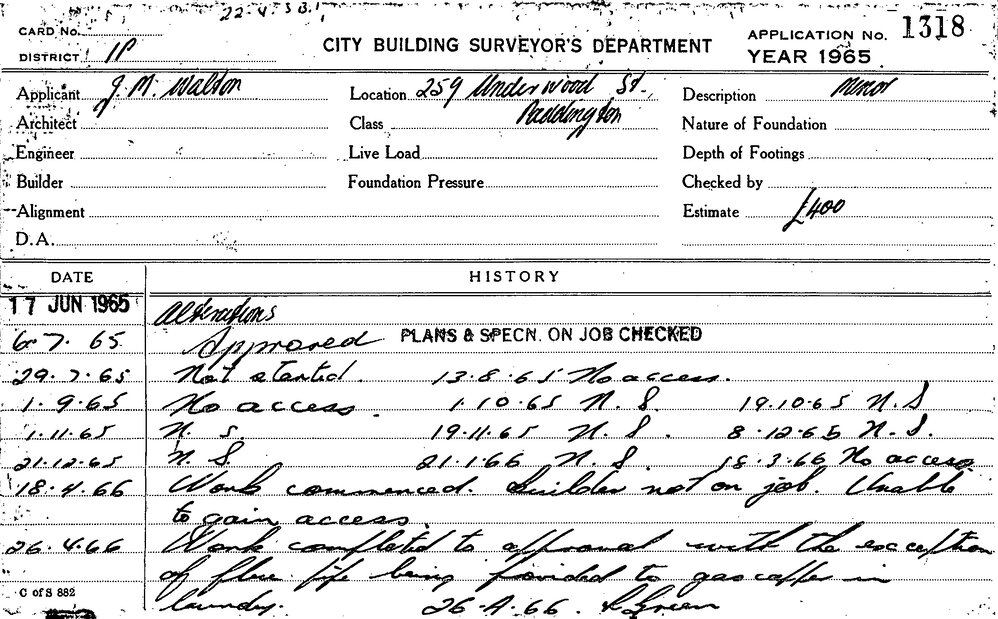 22.4.58.
CARD No. APPLICATION No. 1318
DISTRICT 1P CITY BUILDING SURVEYOR'S DEPARTMENT YEAR 1965
Applicant J. M. Walton Location 259 Underwood St. Description Minor
Architect Class Paddington Nature of Foundation
Engineer Live Load Depth of Footings
Builder Foundation Pressure Checked by
Alignment Estimate £400
D.A.
DATE HISTORY
17 JUN 1965 Alterations
6.7.65 Approved PLANS & SPECN. ON JOB CHECKED
29.7.65 Not started. 13.8.65 No access.
1.9.65 No access. 1.10.65 N.S. 19.10.65 N.S
1.11.65 N.S. 19.11.65 N.S. 8.12.65 N.S.
21.12.65 N.S. 21.1.66 N.S. 18.3.66 No access.
18.4.66 Work commenced. Builder not on job. Unable
to gain access.
26.4.66 Work completed to approval with the exception
of flue pipe being provided to gas copper in
laundry. 26.4.66. Green
C of S 882